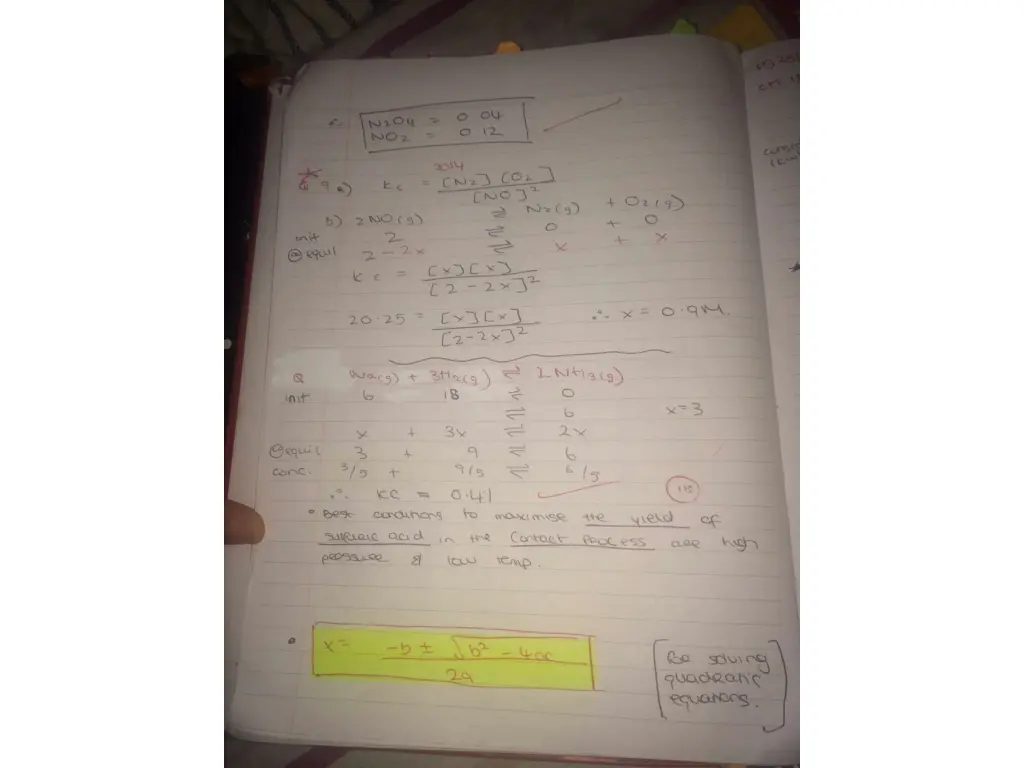 N2O4 = 0.04
NO2 = 0.12
2014
9 a) Kc = [N2] [O2]
[NO]²
b) 2NO(g) ⇌ N2(g) + O2(g)
init 2 ⇌ 0 + 0
@equil 2-2x ⇌ x + x
Kc = [x][x]
[2-2x]²
20.25 = [x][x] ∴ x = 0.9M.
[2-2x]²
Q N2(g) + 3H2(g) ⇌ 2NH3(g)
init 6 18 ⇌ 0
⇌ 6 x=3
x + 3x ⇌ 2x
@equil 3 + 9 ⇌ 6
conc. 3/5 + 9/5 ⇌ 6/5
∴ KC = 0.41
• Best conditions to maximise the yield of
sulfuric acid in the Contact Process are high
pressure & low temp.
• x = -b ± √b² - 4ac
2a
[Be solving
quadratic
equations.]